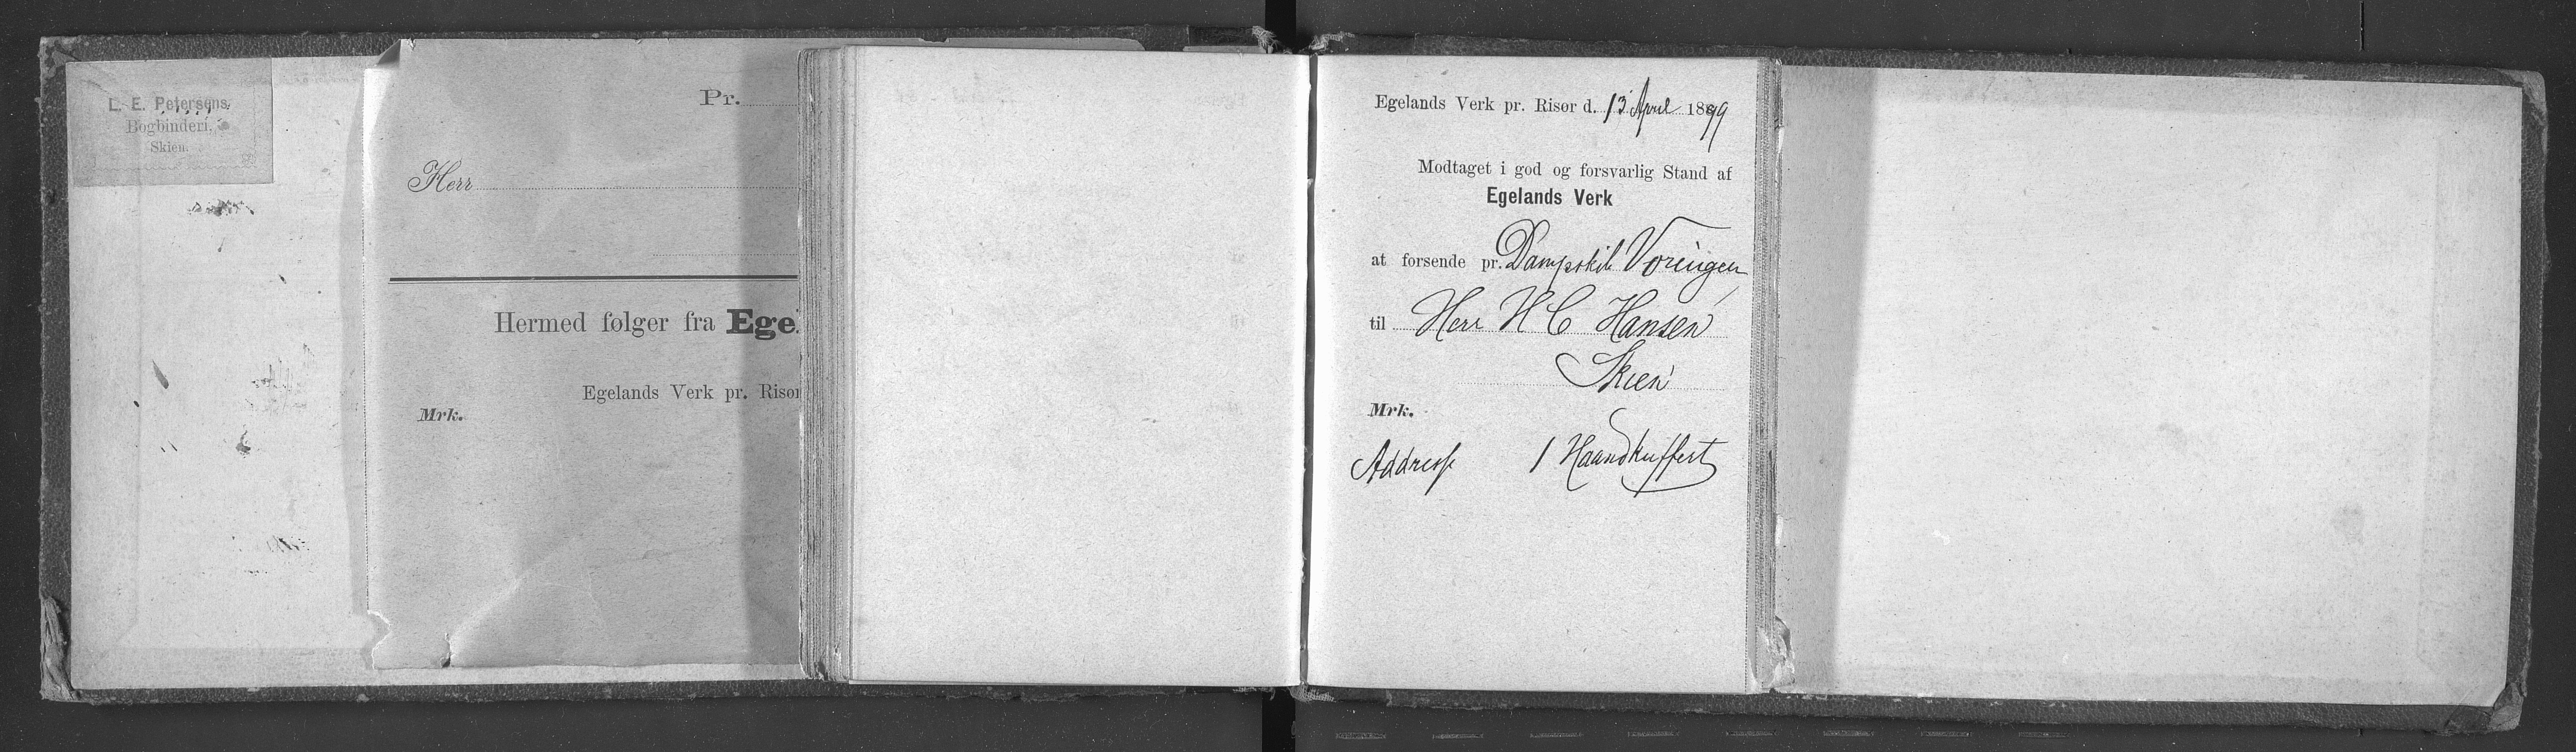 L. E. Petersens
Bogbinderi.
Skien.
Pr.
Herr
Hermed følger fra Ege
Egelands Verk pr. Risør
Mrk.
Egelands Verk pr. Risør d. 13 April 1899
Modtaget i god og forsvarlig Stand af
Egelands Verk
at forsende pr. Dampskib Vøringen
til Herr H C Hansen
Skien
Mrk.
Address 1 Haandkuffert